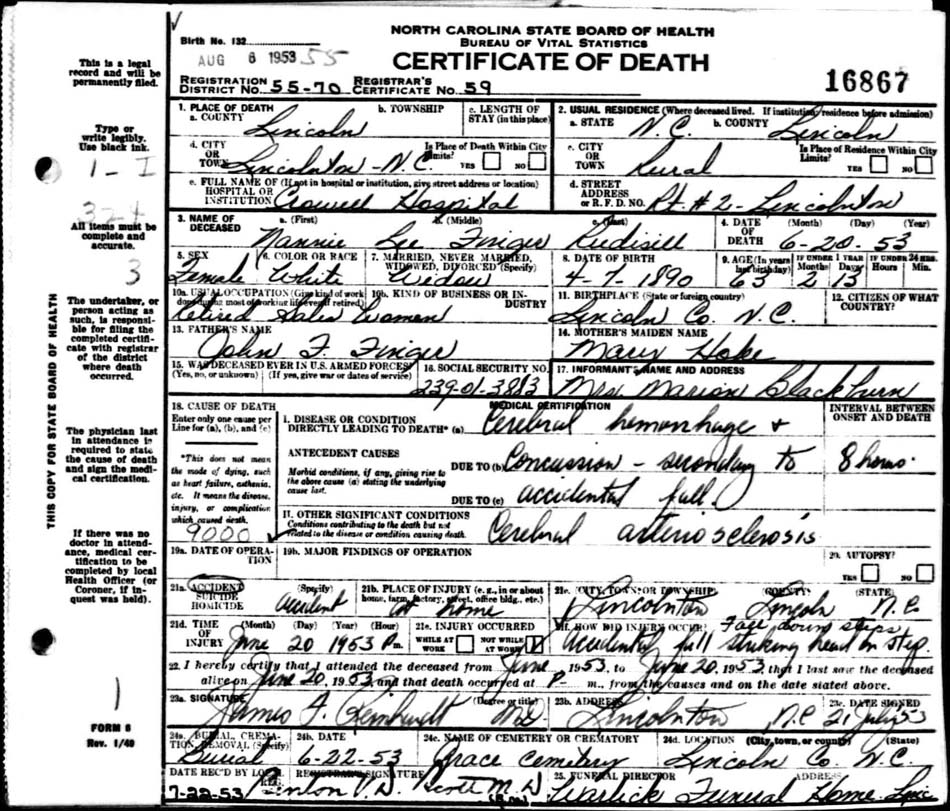 NORTH CAROLINA STATE BOARD OF HEALTH
BUREAU OF VITAL STATISTICS
CERTIFICATE OF DEATH
Birth No. 132
AUG 6 1953 55
REGISTRATION DISTRICT No. 55-70 REGISTRAR'S CERTIFICATE No. 59
16867
This is a legal record and will be permanently filed.
Type or write legibly. Use black ink.
1-I
324
All items must be complete and accurate.
3
The undertaker, or person acting as such, is responsible for filing the completed certificate with registrar of the district where death occurred.
The physician last in attendance is required to state the cause of death and sign the medical certification.
If there was no doctor in attendance, medical certification to be completed by local Health Officer (or Coroner, if inquest was held).
1
FORM 8
Rev. 1/49
THIS COPY FOR STATE BOARD OF HEALTH
1. PLACE OF DEATH
a. COUNTY Lincoln
b. TOWNSHIP
c. LENGTH OF STAY (in this place)
2. USUAL RESIDENCE (Where deceased lived. If institution; residence before admission)
a. STATE N.C. b. COUNTY Lincoln
d. CITY OR TOWN Lincolnton - N.C.
Is Place of Death Within City Limits? YES NO
c. CITY OR TOWN Rural
Is Place of Residence Within City Limits? YES NO
e. FULL NAME OF (If not in hospital or institution, give street address or location) HOSPITAL OR INSTITUTION Crowell Hospital
d. STREET ADDRESS OR R.F.D. NO. Rt. #2 - Lincolnton
3. NAME OF DECEASED a. (First) b. (Middle) c. (Last)
Nannie Lee Finger Rudisill
4. DATE OF DEATH (Month) (Day) (Year)
6-20-53
5. SEX Female
6. COLOR OR RACE White
7. MARRIED, NEVER MARRIED, WIDOWED, DIVORCED (Specify) Widow
8. DATE OF BIRTH 4-7-1890
9. AGE (In years last birthday) 63
IF UNDER 1 YEAR Months 2 Days 13
IF UNDER 24 HRS. Hours Min.
10a. USUAL OCCUPATION (Give kind of work done during most of working life, even if retired) Retired Sales Woman
10b. KIND OF BUSINESS OR INDUSTRY
11. BIRTHPLACE (State or foreign country) Lincoln Co. N.C.
12. CITIZEN OF WHAT COUNTRY?
13. FATHER'S NAME John F. Finger
14. MOTHER'S MAIDEN NAME Mary Hoke
15. WAS DECEASED EVER IN U.S. ARMED FORCES? (Yes, no, or unknown) (If yes, give war or dates of service)
16. SOCIAL SECURITY NO. 239-01-3883
17. INFORMANT'S NAME AND ADDRESS Mrs. Marion Blackburn
18. CAUSE OF DEATH
Enter only one cause per Line for (a), (b), and (c)
*This does not mean the mode of dying, such as heart failure, asthenia, etc. It means the disease, injury, or complication which caused death.
9000
MEDICAL CERTIFICATION
INTERVAL BETWEEN ONSET AND DEATH
I. DISEASE OR CONDITION DIRECTLY LEADING TO DEATH* (a) Cerebral hemorrhage &
ANTECEDENT CAUSES
Morbid conditions, if any, giving rise to the above cause (a) stating the underlying cause last.
DUE TO (b) Concussion - secondary to 8 hours.
DUE TO (c) accidental fall
II. OTHER SIGNIFICANT CONDITIONS
Conditions contributing to the death but not related to the disease or condition causing death.
Cerebral arteriosclerosis
19a. DATE OF OPERATION
19b. MAJOR FINDINGS OF OPERATION
20. AUTOPSY? YES NO
21a. ACCIDENT SUICIDE HOMICIDE (Specify) accident
21b. PLACE OF INJURY (e.g., in or about home, farm, factory, street, office bldg., etc.) at home
21c. (CITY, TOWN, OR TOWNSHIP) (COUNTY) (STATE)
Lincolnton Lincoln N.C.
21d. TIME OF INJURY (Month) (Day) (Year) (Hour) June 20 1953 Pm.
21e. INJURY OCCURRED WHILE AT WORK NOT WHILE AT WORK
21f. HOW DID INJURY OCCUR? Fall down steps
Accidently fall striking head on step.
22. I hereby certify that I attended the deceased from June, 1953, to June 20, 1953, that I last saw the deceased
alive on June 20, 1953, and that death occurred at P- m., from the causes and on the date stated above.
23a. SIGNATURE (Degree or title) James F. Reinhardt MD
23b. ADDRESS Lincolnton N.C.
23c. DATE SIGNED 21 July 53
24a. BURIAL, CREMATION, REMOVAL (Specify) Burial
24b. DATE 6-22-53
24c. NAME OF CEMETERY OR CREMATORY Grace Cemetery
24d. LOCATION (City, town, or county) (State) Lincoln Co. N.C.
DATE REC'D BY LOCAL REG. 7-22-53
REGISTRAR'S SIGNATURE Scott M.D.
25. FUNERAL DIRECTOR ADDRESS
Warlick Funeral Home. Linc